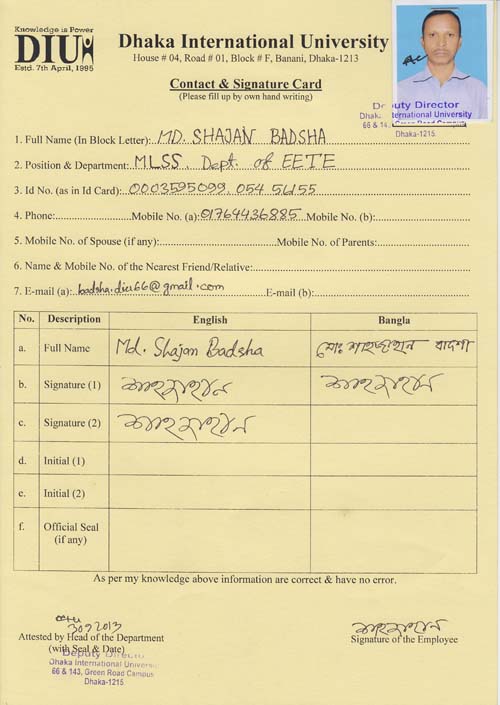 Knowledge is Power
DIU
Estd. 7th April, 1995
Dhaka International University
House # 04, Road # 01, Block # F, Banani, Dhaka-1213
Contact & Signature Card
(Please fill up by own hand writing)
Deputy Director
Dhaka International University
66 & 143, Green Road Campus
Dhaka-1215.
1. Full Name (In Block Letter): MD. SHAJAN BADSHA
2. Position & Department: MLSS. Dept. of EETE
3. Id No. (as in Id Card): 0003595099, 054 56155
4. Phone: Mobile No. (a): 01764436885 Mobile No. (b):
5. Mobile No. of Spouse (if any): Mobile No. of Parents:
6. Name & Mobile No. of the Nearest Friend/Relative:
7. E-mail (a): badsha.diu66@gmail.com E-mail (b):
No. Description English Bangla
a. Full Name Md. Shajan Badsha মোঃ শাহজাহান বাদশা
b. Signature (1) শাহজাহান শাহজাহান
c. Signature (2) শাহজাহান
d. Initial (1)
e. Initial (2)
f. Official Seal
(if any)
As per my knowledge above information are correct & have no error.
Attested by Head of the Department
(with Seal & Date)
Deputy Director
Dhaka International University
66 & 143, Green Road Campus
Dhaka-1215
শাহজাহান
Signature of the Employee